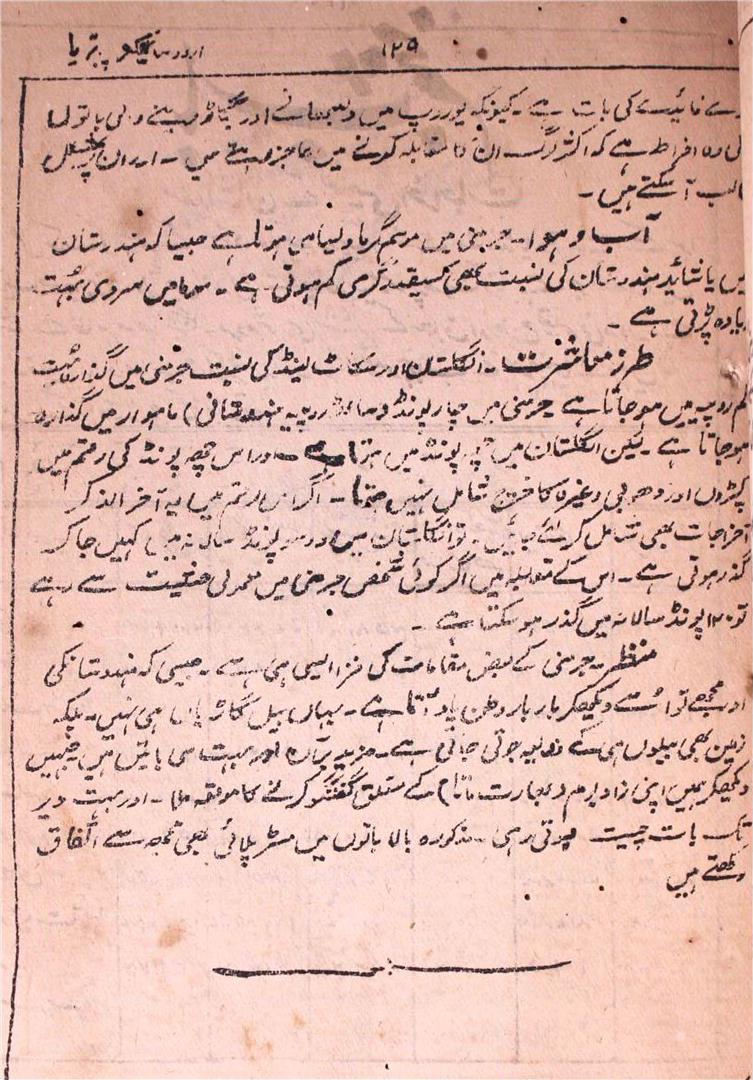 ۱۲۹
فائدے کی بات ہے۔ کیونکہ یوروپ میں اور بگاڑ دینے والی باتوں
کی وہ افراط ہے کہ اکثر لوگ ان کا مقابلہ کرنے میں عاجز رہتے ہیں۔ اور ان پر مشکل
غالب آ سکتے ہیں۔
آب و ہوا۔ جرمنی میں موسم گرما ویسا ہی ہوتا ہے جیسا کہ ہندوستان
میں یا شائد ہندوستان کی نسبت بھی کسیقدر گرمی کم ہوتی ہے۔ سرما میں سردی بہت
زیادہ پڑتی ہے۔
طرز معاشرت۔ انگلستان اور سکاٹ لینڈ کی نسبت جرمنی میں گذارا بہت
کم روپیہ میں ہو جاتا ہے جرمنی میں چار پونڈ (روپیہ ہندوستانی) ماہوار میں گذارہ
ہو جاتا ہے۔ لیکن انگلستان میں چھ پونڈ میں ہوتا ہے۔ اور اس چھ پونڈ کی رقم میں
کپڑوں اور دھوبی وغیرہ کا خرچ شامل نہیں ہوتا۔ اگر اس رقم میں یہ آخر الذکر
اخراجات بھی شامل کر لئے جائیں۔ تو انگلستان میں دو سو پونڈ سالانہ میں کہیں جا کر
گذر ہوتی ہے۔ اس کے مقابلہ میں اگر کوئی شخص جرمنی میں معمولی حیثیت سے رہے
تو ۱۲۰ پونڈ سالانہ میں گذر ہو سکتا ہے۔
منظر۔ جرمنی کے بعض مقامات کی فضا ایسی ہی ہے۔ جیسی کہ ہندوستان کی
اور مجھے تو اسے دیکھکر بار بار وطن یاد آتا ہے۔ یہاں بیل گاڑیاں ہی نہیں۔ بلکہ
زمین بھی بیلوں ہی کے ذریعہ جوتی جاتی ہے۔ مزید برآں اور بہت سی باتیں ہیں جنہیں
دیکھکر ہمیں اپنی زاد بوم (بھارت ماتا) کے متعلق گفتگو کرنے کا موقعہ ملا۔ اور بہت دیر
تک بات چیت ہوتی رہی۔ مذکورہ بالا باتوں میں مسٹر پلائی بھی مجھ سے اتفاق
رکھتے ہیں